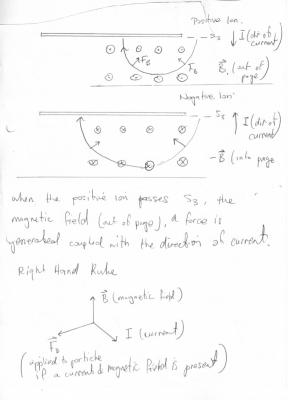 Positive Ion.
S₃
↓ I (dir of
current)
F_B
F_B
B⃗ (out of
page)
Negative Ion
S₃
↑ I (dir of
current)
-B⃗ (into page
when the positive ion passes S₃, the
magnetic field (out of page), a force is
generated coupled with the direction of current.
Right Hand Rule
B⃗ (magnetic field)
I (current)
F⃗_B
(applied to particle
if a current & magnetic field is present)